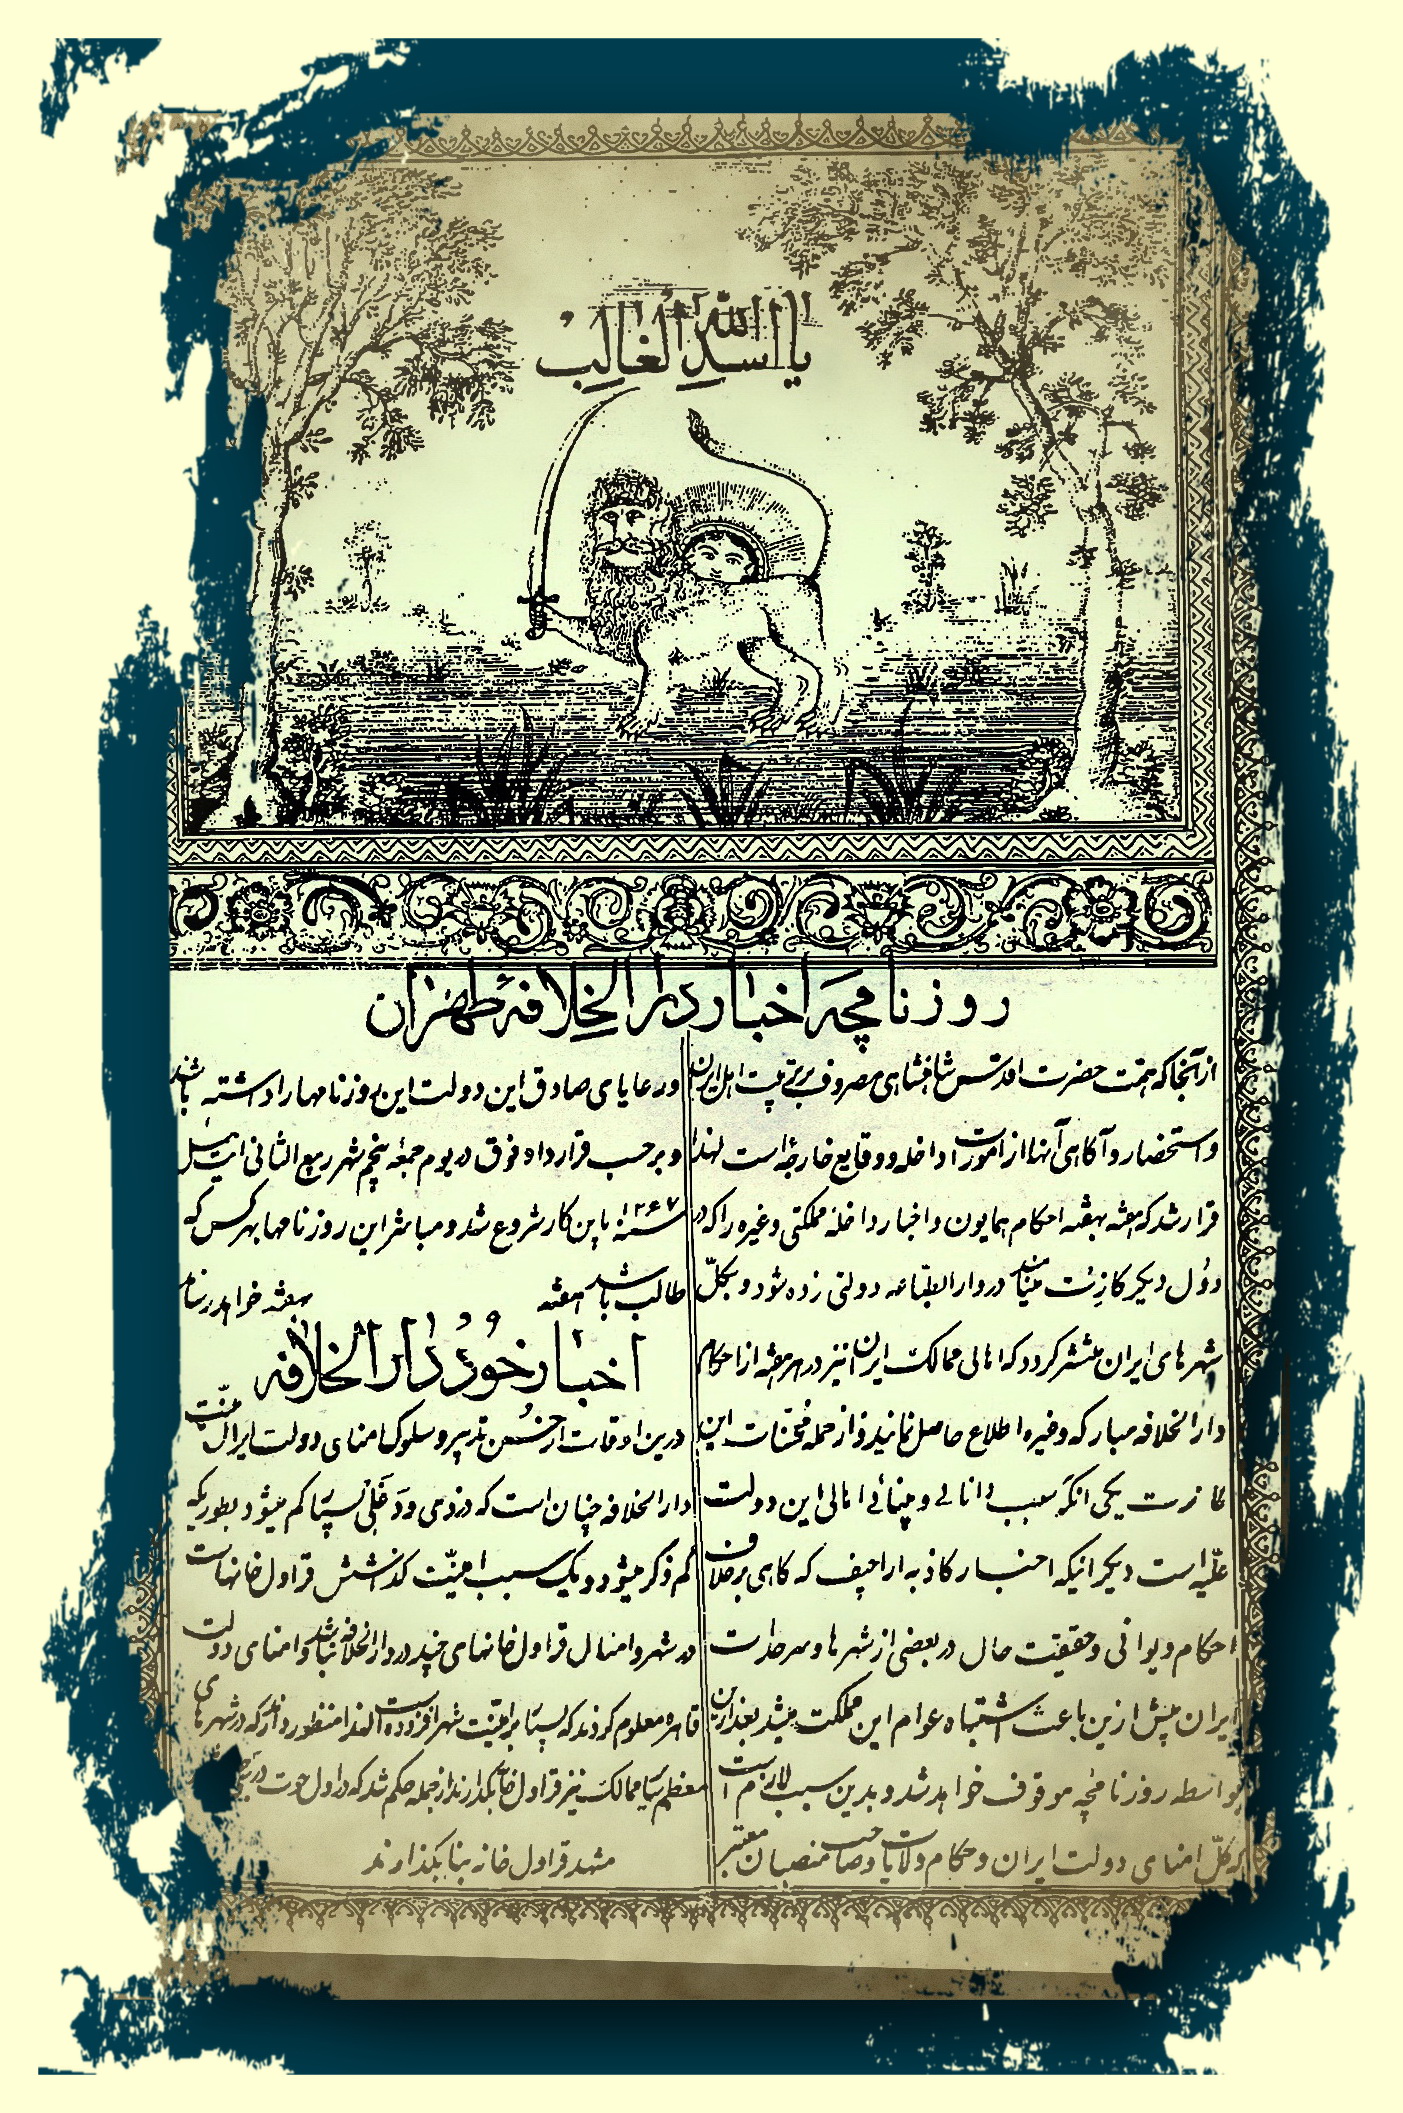 یا اسد الله الغالب
روزنامچه اخبار دارالخلافه طهران
از آنجا که همت حضرت اقدس شاهنشاهی مصروف بر تربیت اهل ایران
و استحضار و آگاهی آنها از امورات داخله و وقایع خارجه است لهذا
قرار شد که هفته بهفته احکام همایون و اخبار داخلهٔ مملکتی و غیره را که در
دول دیگر کازت مینامند در دارالطباعه دولتی زده شود و بکلّ
شهرهای ایران منتشر کردد که اهالی ممالک ایران نیز در هر هفته از احکام
دارالخلافه مبارکه و غیره اطلاع حاصل نمایند و از جمله محسّنات این
کازت یکی آنکه سبب دانائی و بینائی اهالی این دولت
علیّه است دیگر اینکه اخبار کاذبه اراجیف که کاهی برخلاف
احکام دیوانی و حقیقت حال در بعضی از شهرها و سرحدات
ایران پیش ازین باعث اشتباه عوام این مملکت میشد بعد ازین
بواسطه روزنامچه موقوف خواهد شد و بدین سبب لازم است
که کلّ امنای دولت ایران و حکام ولایات و صاحب منصبان معتبر
و رعایای صادق این دولت این روزنامها را داشته باشند
و بر حسب قرارداد فوق در یوم جمعه پنجم شهر ربیع الثانی ایت ئیل
سنه ۱۲۶۷ باین کار شروع شد و مباشر این روزنامها بهر کس که
طالب باشد هفته بهفته خواهد رساند
اخبار خود دارالخلافه
درین اوقات از حسن تدبیر و سلوک امنای دولت ایران امنیّت
دارالخلافه چنان است که دزدی و دغلی بسیار کم میشود بطوریکه
کم ذکر میشود و یک سبب امنیّت کذاشتن قراول خانهاست
در شهر و امثال قراول خانهای چند در دارالخلافه بنا شد و امنای دولت
قاهره معلوم کردند که بسیار بر امنیّت شهر افزوده است لهذا منظور دارند که در شهرهای
معظم سایر ممالک نیز قراول خانه بگذارند از جمله حکم شد که در اول حوت در
مشهد قراول خانه بنا بگذارند